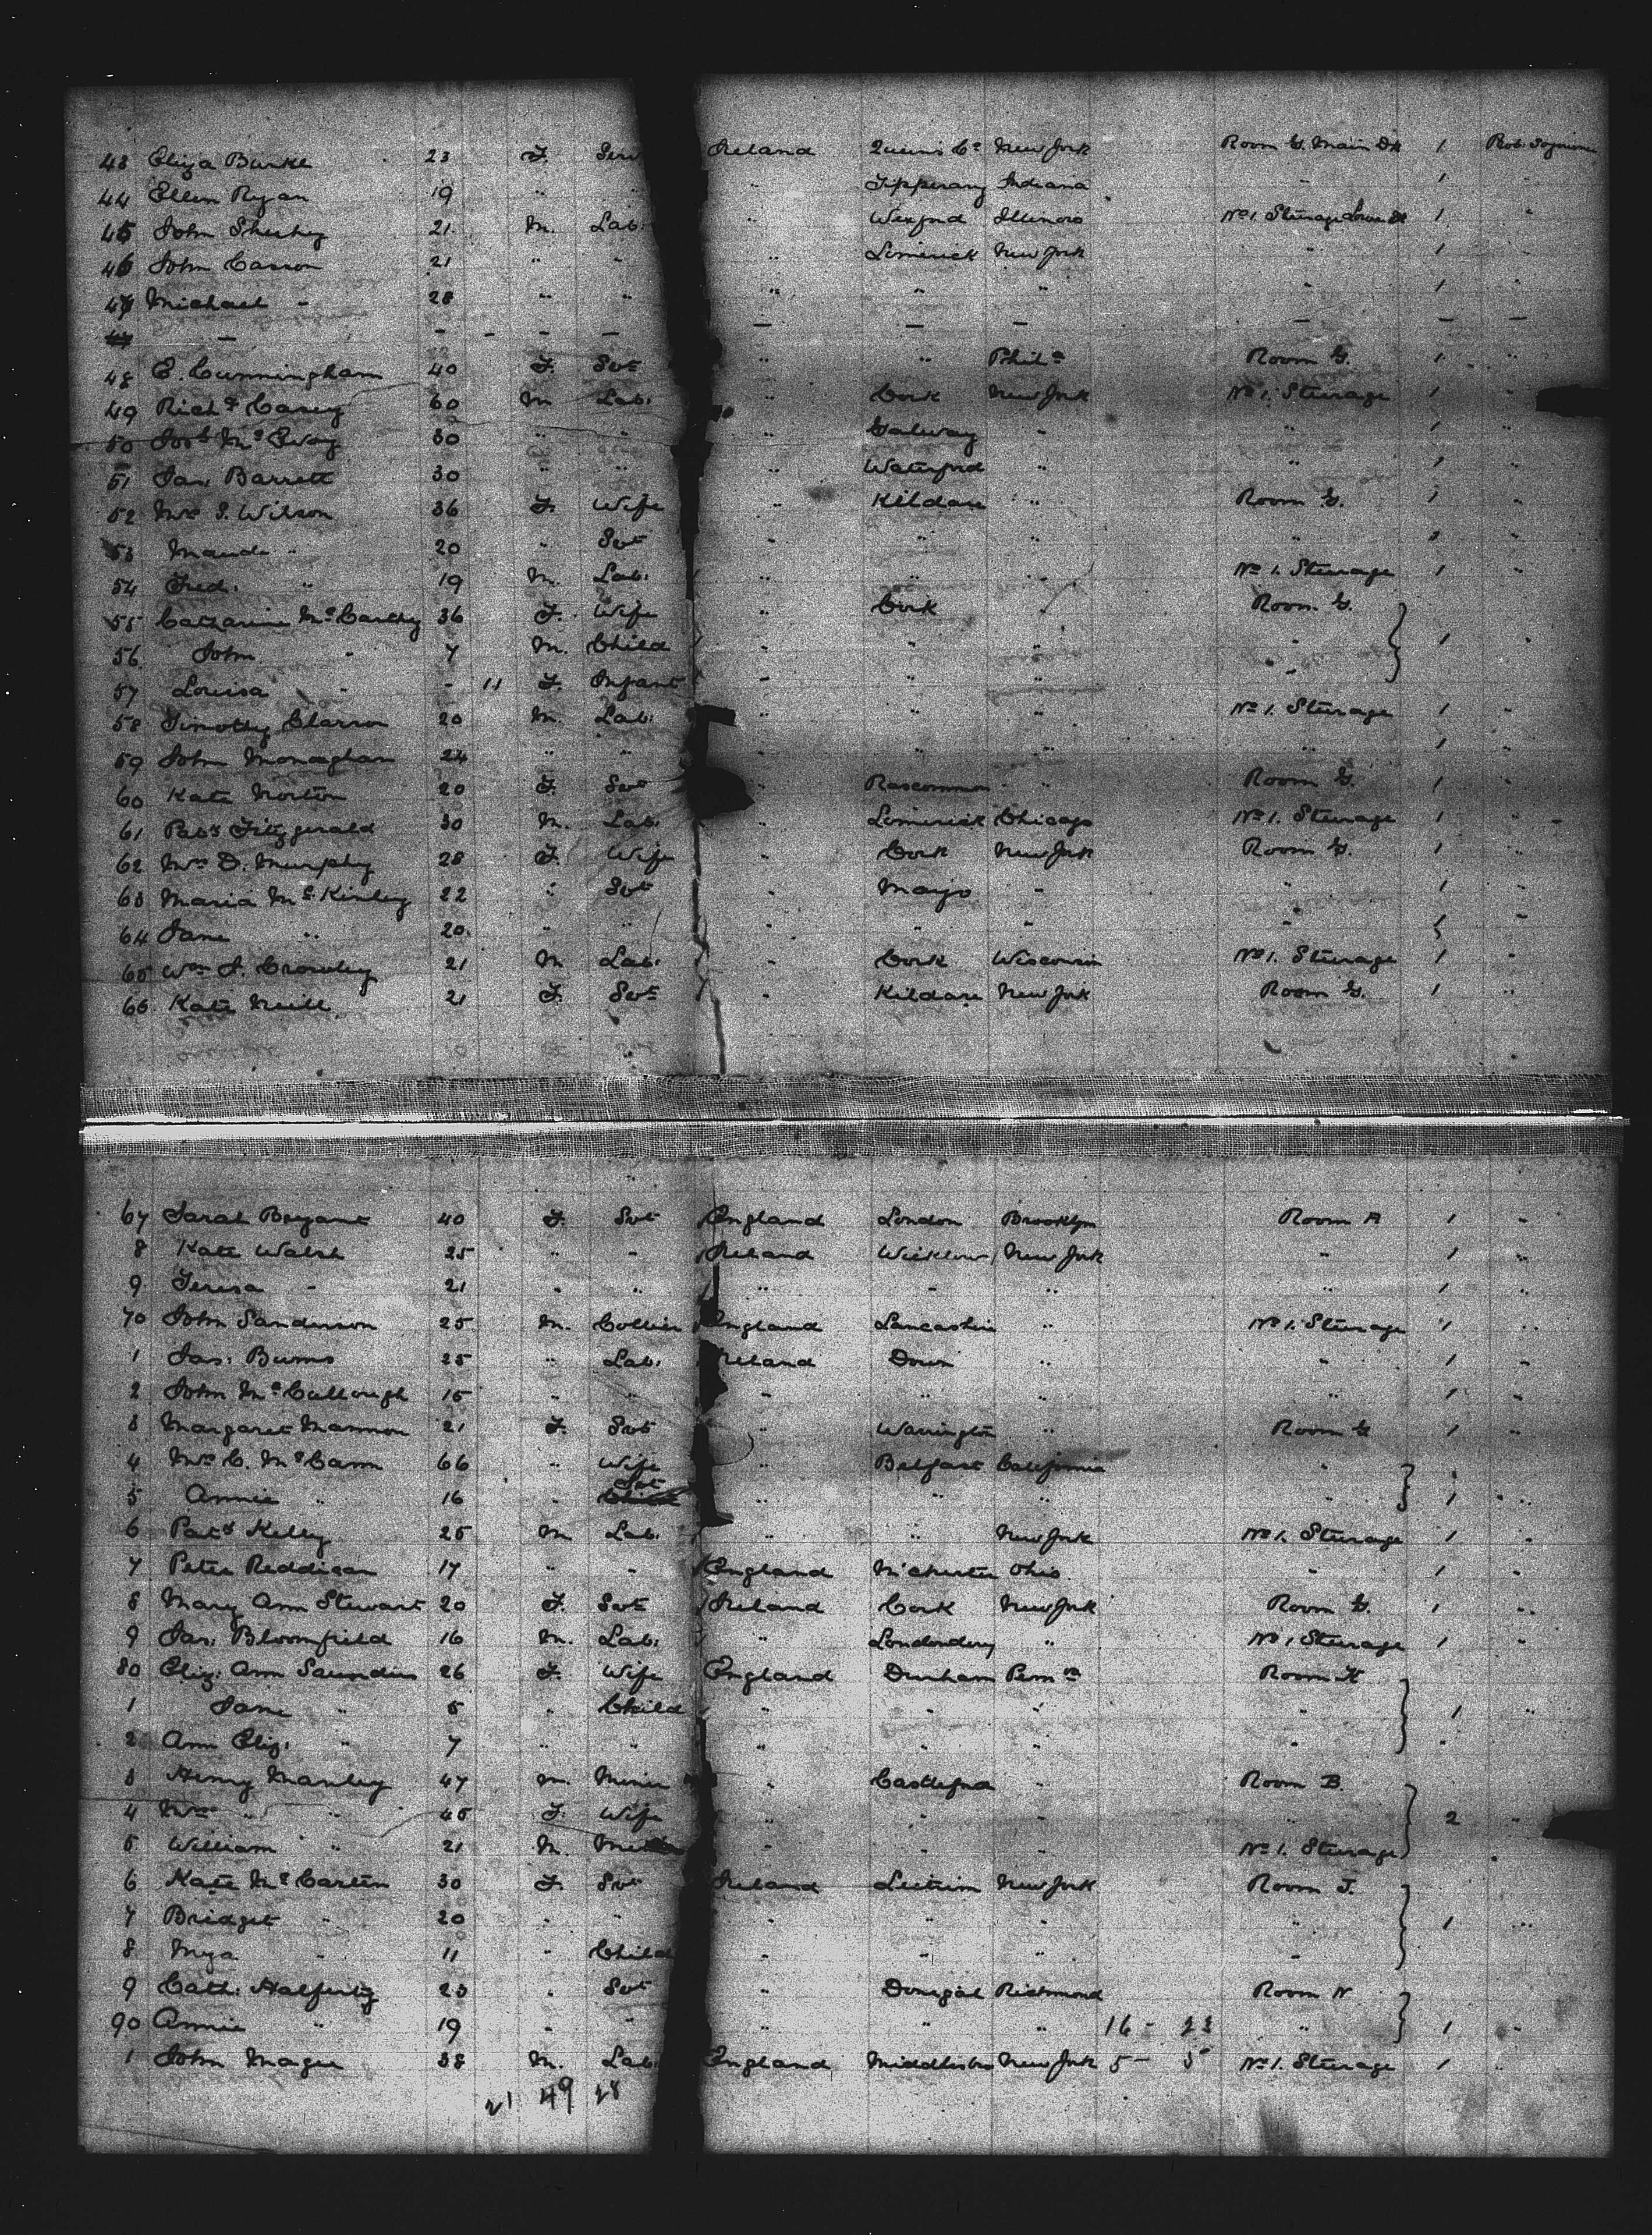 43 Eliza Burke 23 F. Serv Ireland Queens Co New York Room G. Main Dk 1 Prot. Sojourn
44 Ellen Ryan 19 " " " Tipperary Indiana " 1 "
45 John Sheehy 21 M. Lab. " Wexford Illinois No 1. Steerage Lower Dk 1 "
46 John Casson 21 " " " Limerick New York " 1 "
47 Michael " 28 " " " " " " 1 "
— — — — — — — — — — —
48 E. Cunningham 40 F. Svt " " Phila Room G. 1 "
49 Richd Casey 60 M Lab. " Cork New York No 1. Steerage 1 "
50 Josh McEvoy 30 " " " Galway " " 1 "
51 Jas. Barrett 30 " " " Waterford " " 1 "
52 Mrs S. Wilson 36 F. Wife " Kildare " Room G. 1 "
53 Maude " 20 " Svt " " " " "
54 Fred. " 19 M. Lab. " " " No 1. Steerage 1 "
55 Catharine McCarthy 36 F. Wife " Cork " Room G.
56 John " 7 M. Child " " " " 1 "
57 Louisa " - 11 F. Infant " " " "
58 Timothy 20 M. Lab. " " " No 1. Steerage 1 "
59 John Monaghan 24 " " " " " " 1 "
60 Kate Norton 20 F. Svt " Roscommon " Room G. 1 "
61 Patk Fitzgerald 30 M. Lab. " Limerick Chicago No 1. Steerage 1 "
62 Mrs D. Murphy 28 F. Wife " Cork New York Room G. 1 "
63 Maria McKinley 22 " Svt " Mayo " " 1 "
64 Jane " 20 " " " " " " "
65 Wm J. Crowley 21 M Lab. " Cork Wisconsin No 1. Steerage 1 "
66 Kate Neill 21 F. Svt " Kildare New York Room G. 1 "
67 Sarah Bryant 40 F. Svt England London Brooklyn Room A 1 "
8 Kate Walsh 25 " " Ireland Wicklow New York " 1 "
9 Teresa " 21 " " " " " " 1 "
70 John Sanderson 25 M. Collier England Lancashire " No 1. Steerage 1 "
1 Jas: Burns 25 " Lab. Ireland Down " " 1 "
2 John McCullough 15 " " " " " " 1 "
3 Margaret Mannon 21 F. Svt " Warrington " Room G 1 "
4 Mrs C. McCann 66 " Wife " Belfast California " 1
5 Annie " 16 " Svt " " " " 1 "
6 Patk Kelly 25 M Lab. " " New York No 1. Steerage 1 "
7 Peter Reddican 17 " " England M'chester Ohio " 1 "
8 Mary Ann Stewart 20 F. Svt Ireland Cork New York Room G. 1 "
9 Jas: Bloomfield 16 M. Lab. " Londonderry " No 1 Steerage 1 "
80 Eliz: Ann Saunders 26 F. Wife England Durham Penna Room H
1 Jane " 5 " Child " " " " 1 "
2 Ann Eliz: " 7 " " " " " "
3 Henry Manley 47 M. Miner " Castleford " Room B.
4 Mrs " " 45 F. Wife " " " " 2 "
5 William " 21 M. " " " No 1. Steerage
6 Kate McCarten 30 F. Svt Ireland Leitrim New York Room J.
7 Bridget " 20 " " " " " " 1 "
8 " 11 " Child " " " "
9 Cath: Halferty 23 " Svt " Donegal Richmond Room N
90 Annie " 19 " " " " " 16 - 23 " 1 "
1 John Magee 38 M. Lab. England Middlesbro New York 5 - 5 No 1. Steerage 1 "
21 49 28